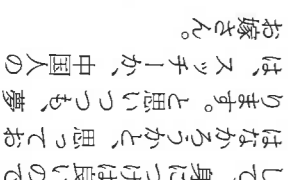 して、身につけば良いので
はなかろうかと、思ってお
ります。と思いつつも、夢
は、スッチーか、中国人の
お嫁さん。